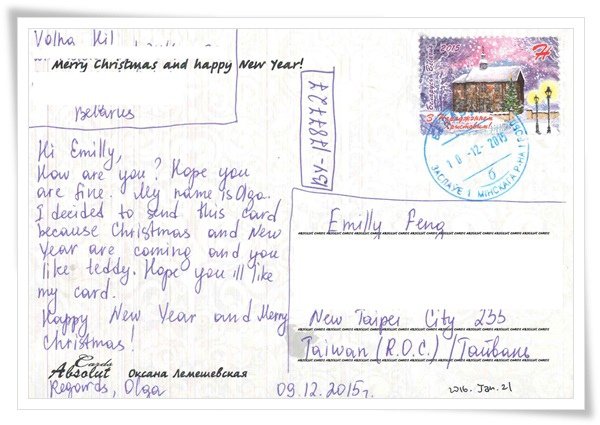 Volha Kil
Merry Christmas and happy New Year!
Belarus
Hi Emilly,
How are you? Hope you
are fine. My name is Olga.
I decided to send this card
because Christmas and New
Year are coming and you
like teddy. Hope you'll like
my card.
Happy New Year and Merry
Christmas!
Cards
Absolut Оксана Лемешевская
Regards, Olga
09.12.2015г.
2015
Н
З Нараджэннем
Хрыстовым!
10-12-2015
б
ЗАСЛАЎЕ 1 МІНСКАГА Р-НА
Emilly Feng
New Taipei City 235
Taiwan (R.O.C.) / Тайвань
2016. Jan. 21